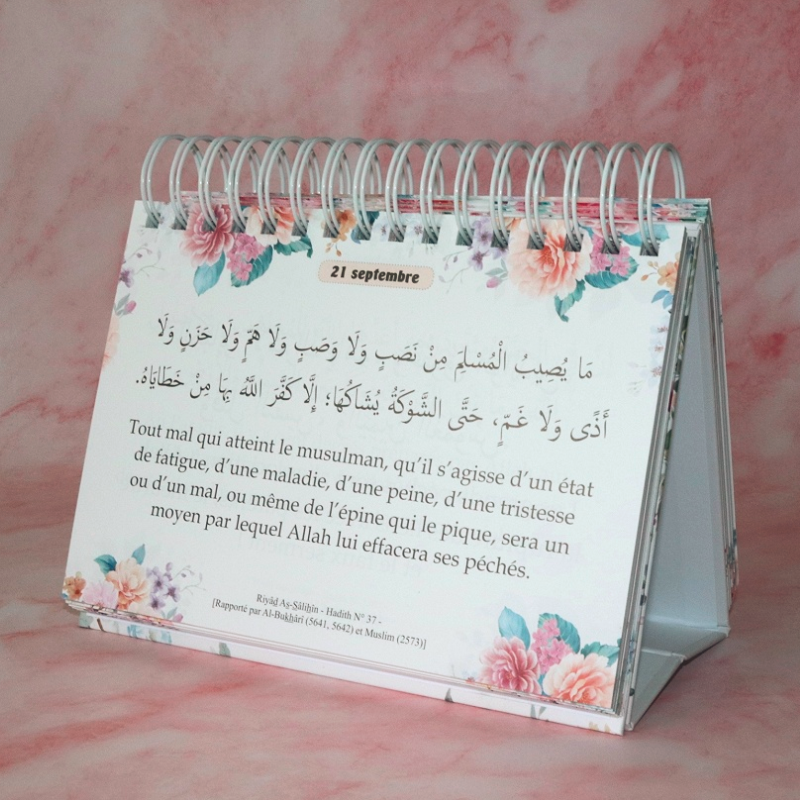 21 septembre
مَا يُصِيبُ الْمُسْلِمَ مِنْ نَصَبٍ وَلَا وَصَبٍ وَلَا هَمٍّ وَلَا حَزَنٍ وَلَا
أَذًى وَلَا غَمٍّ، حَتَّى الشَّوْكَةُ يُشَاكُهَا؛ إِلَّا كَفَّرَ اللَّهُ بِهَا مِنْ خَطَايَاهُ.
Tout mal qui atteint le musulman, qu’il s’agisse d’un état
de fatigue, d’une maladie, d’une peine, d’une tristesse
ou d’un mal, ou même de l’épine qui le pique, sera un
moyen par lequel Allah lui effacera ses péchés.
Riyâḍ Aṣ-Ṣâliḥîn - Hadith N° 37 -
[Rapporté par Al-Bukhârî (5641, 5642) et Muslim (2573)]